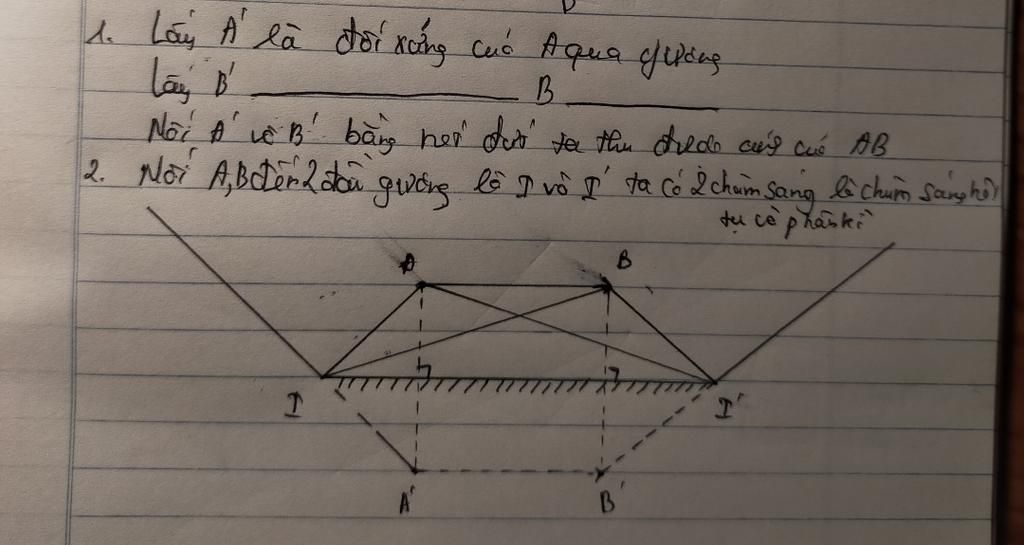 1. Lấy A' là đối xứng của A qua gương
Lấy B' ____ B ____
Nối A' và B' bằng nét đứt ta thu được ảnh của AB
2. Nối A, B đến 2 đầu gương là I và I' ta có 2 chùm sáng là chùm sáng hội
tụ và phân kì
A B
I I'
A' B'